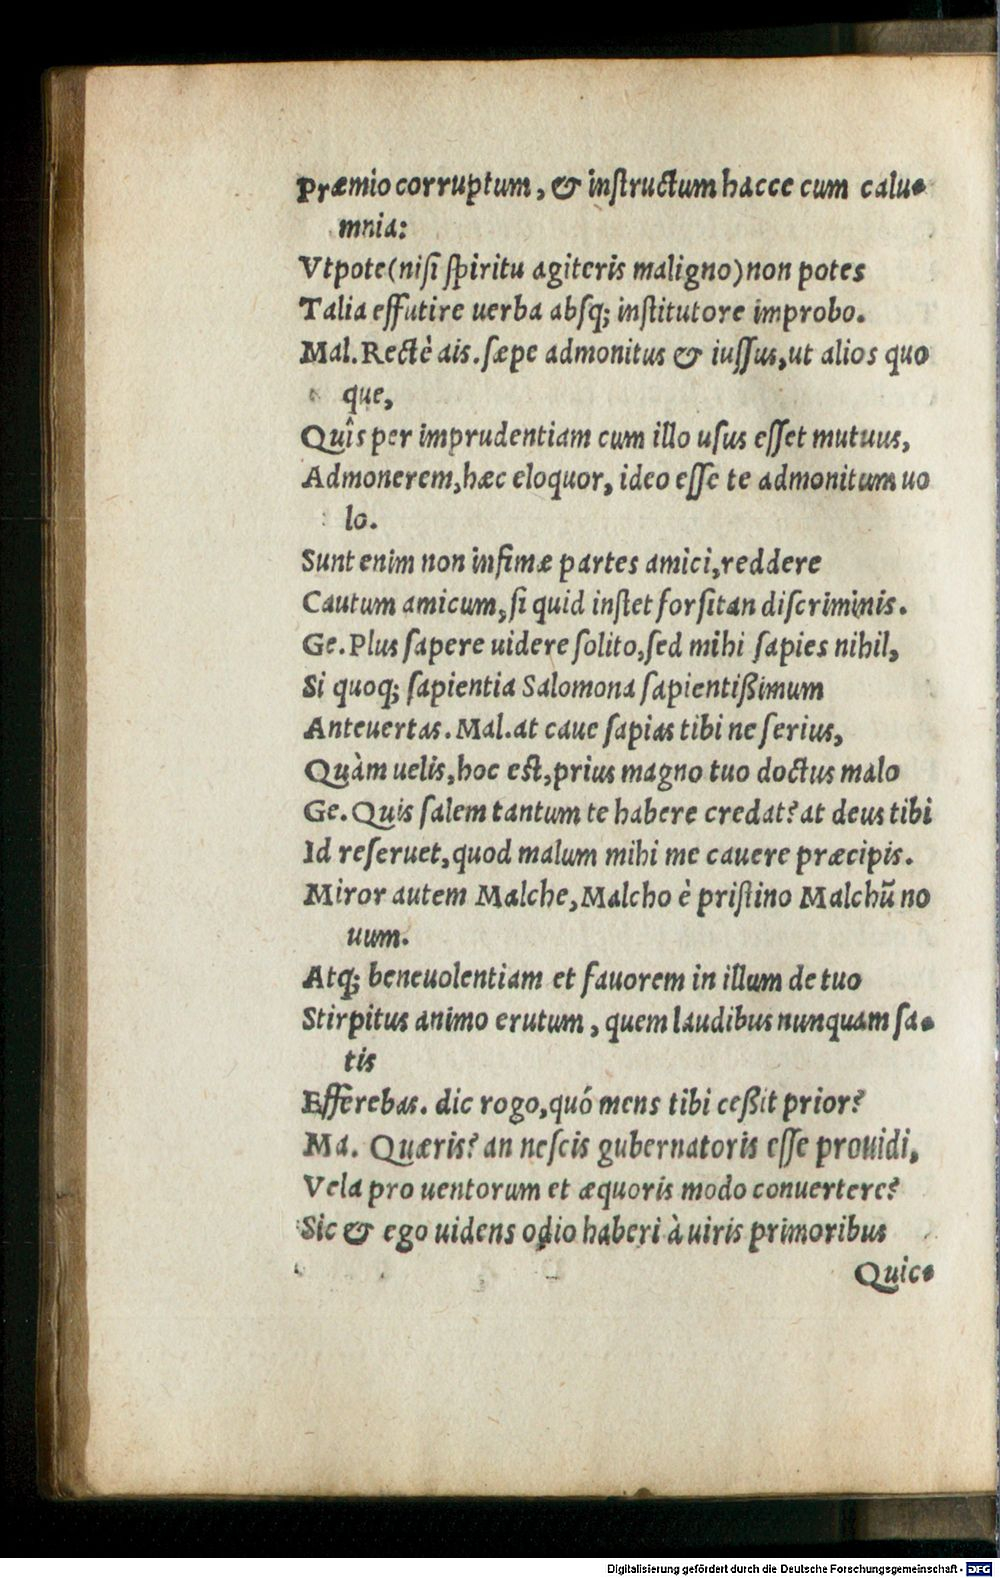 Præmio corruptum, & inſtructum hacce cum calu-
mnia:
Vtpote(niſi ſpiritu agiteris maligno)non potes
Talia effutire uerba abſq; inſtitutore improbo.
Mal. Rectè ais. ſæpe admonitus & iuſſus,ut alios quo
que,
Quîs per imprudentiam cum illo uſus eſſet mutuus,
Admonerem,hæc eloquor, ideo eſſe te admonitum uo
lo.
Sunt enim non infimæ partes amici,reddere
Cautum amicum,ſi quid inſtet forſitan diſcriminis.
Ge. Plus ſapere uidere ſolito,ſed mihi ſapies nihil,
Si quoq; ſapientia Salomona ſapientißimum
Anteuertas. Mal. at caue ſapias tibi ne ſerius,
Quàm uelis,hoc eſt,prius magno tuo doctus malo
Ge. Quis ſalem tantum te habere credat? at deus tibi
Id reſeruet,quod malum mihi me cauere præcipis.
Miror autem Malche,Malcho è priſtino Malchũ no
uum.
Atq; beneuolentiam et fauorem in illum de tuo
Stirpitus animo erutum, quem laudibus nunquam ſa-
tis
Efferebas. dic rogo,quó mens tibi ceßit prior?
Ma. Quæris? an neſcis gubernatoris eſſe prouidi,
Vela pro uentorum et æquoris modo conuertere?
Sic & ego uidens odio haberi à uiris primoribus
Quic-
Digitalisierung gefördert durch die Deutsche Forschungsgemeinschaft - DFG